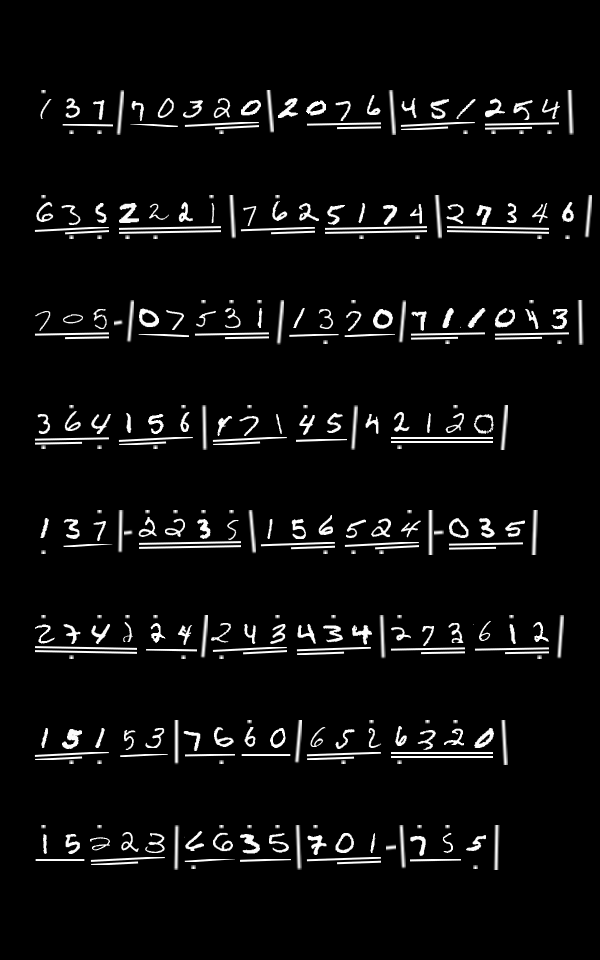 1 3 7 | 7 0 3 2 0 | 2 0 7 6 | 4 5 1 2 5 4 |
6 3 5 2 2 2 1 | 7 6 2 5 1 7 4 | 2 7 3 4 6 |
7 0 5 - | 0 7 5 3 1 | 1 3 7 0 | 7 1 1 0 4 3 |
3 6 4 1 5 6 | 1 7 1 4 5 | 4 2 1 2 0 |
1 3 7 | - 2 2 3 5 | 1 5 6 5 2 4 | - 0 3 5 |
2 7 4 2 2 4 | 2 4 3 4 3 4 | 2 7 3 6 1 2 |
1 5 1 5 3 | 7 6 6 0 | 6 5 2 6 3 2 0 |
1 5 2 2 3 | 6 6 3 5 | 7 0 1 - | 7 5 5 |